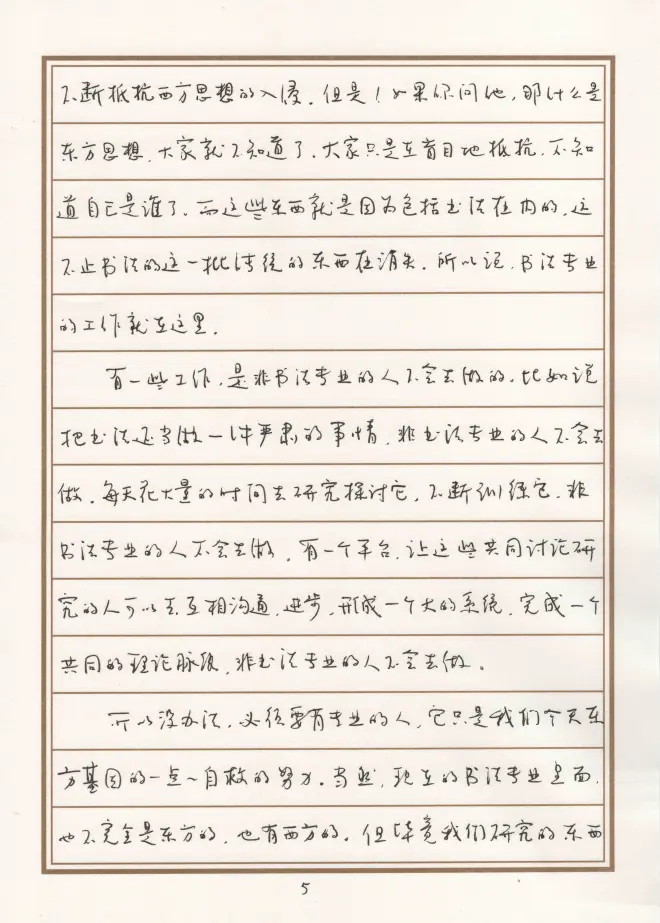 不断抵抗西方思想的入侵。但是！如果你问他，那什么是
东方思想，大家就不知道了。大家只是在盲目地抵抗，不知
道自己是谁了。而这些东西就是因为包括书法在内的，这
不止书法的这一批传统的东西在消失。所以说，书法专业
的工作就在这里。
有一些工作，是非书法专业的人不会去做的。比如说
把书法还当做一件严肃的事情，非书法专业的人不会去
做。每天花大量的时间去研究探讨它，不断训练它，非
书法专业的人不会去做。有一个平台，让这些共同讨论研
究的人可以去互相沟通，进步，形成一个大的系统，完成一个
共同的理论脉络，非书法专业的人不会去做。
所以没办法，必须要有专业的人，它只是我们今天东
方基因的一点一自救的努力。当然，现在的书法专业里面，
也不完全是东方的，也有西方的。但毕竟我们研究的东西
5